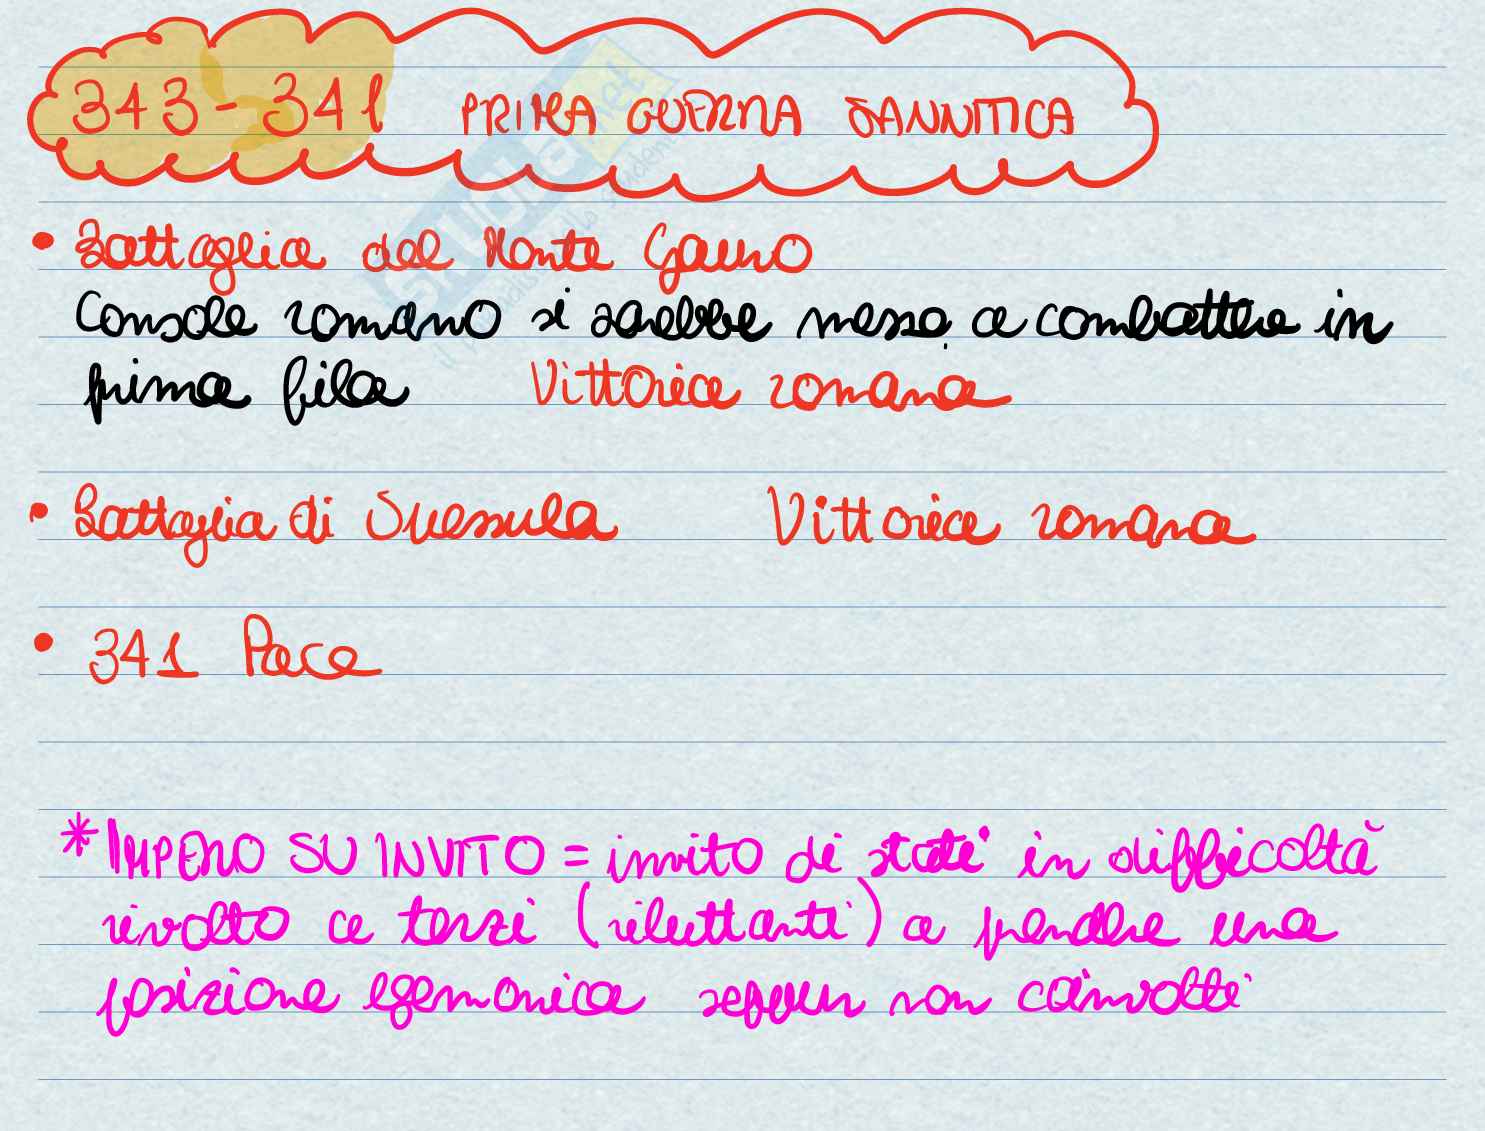 343-341 PRIMA GUERRA SANNITICA
• Battaglia del Monte Gauro
Console romano si sarebbe messo a combattere in
prima fila Vittoria romana
• Battaglia di Suessula Vittoria romana
• 341 Pace
*IMPERO SU INVITO = invito di stati in difficoltà
rivolto a terzi (riluttanti) a prendere una
posizione egemonica seppur non coinvolti